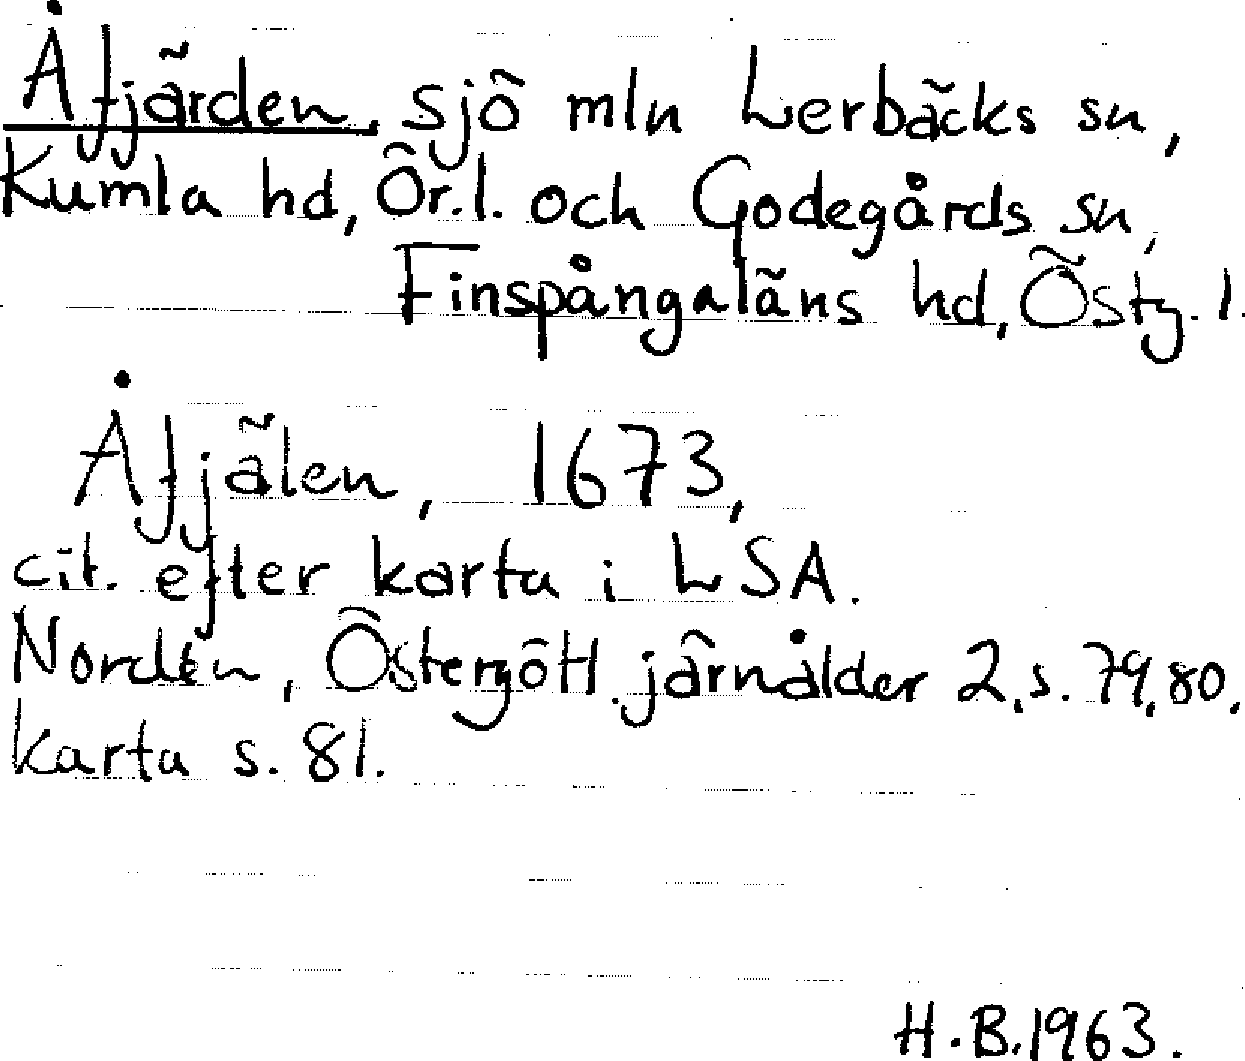 Åfjärden, sjö mln Lerbäcks sn,
Kumla hd, Ör.l. och Godegårds sn,
Finspångaläns hd, Östg. l.
Åfjälen, 1673,
cit. efter karta i LSA.
Nordén, Östergötl. järnålder 2, s. 79, 80,
karta s. 81.
H.B. 1963.